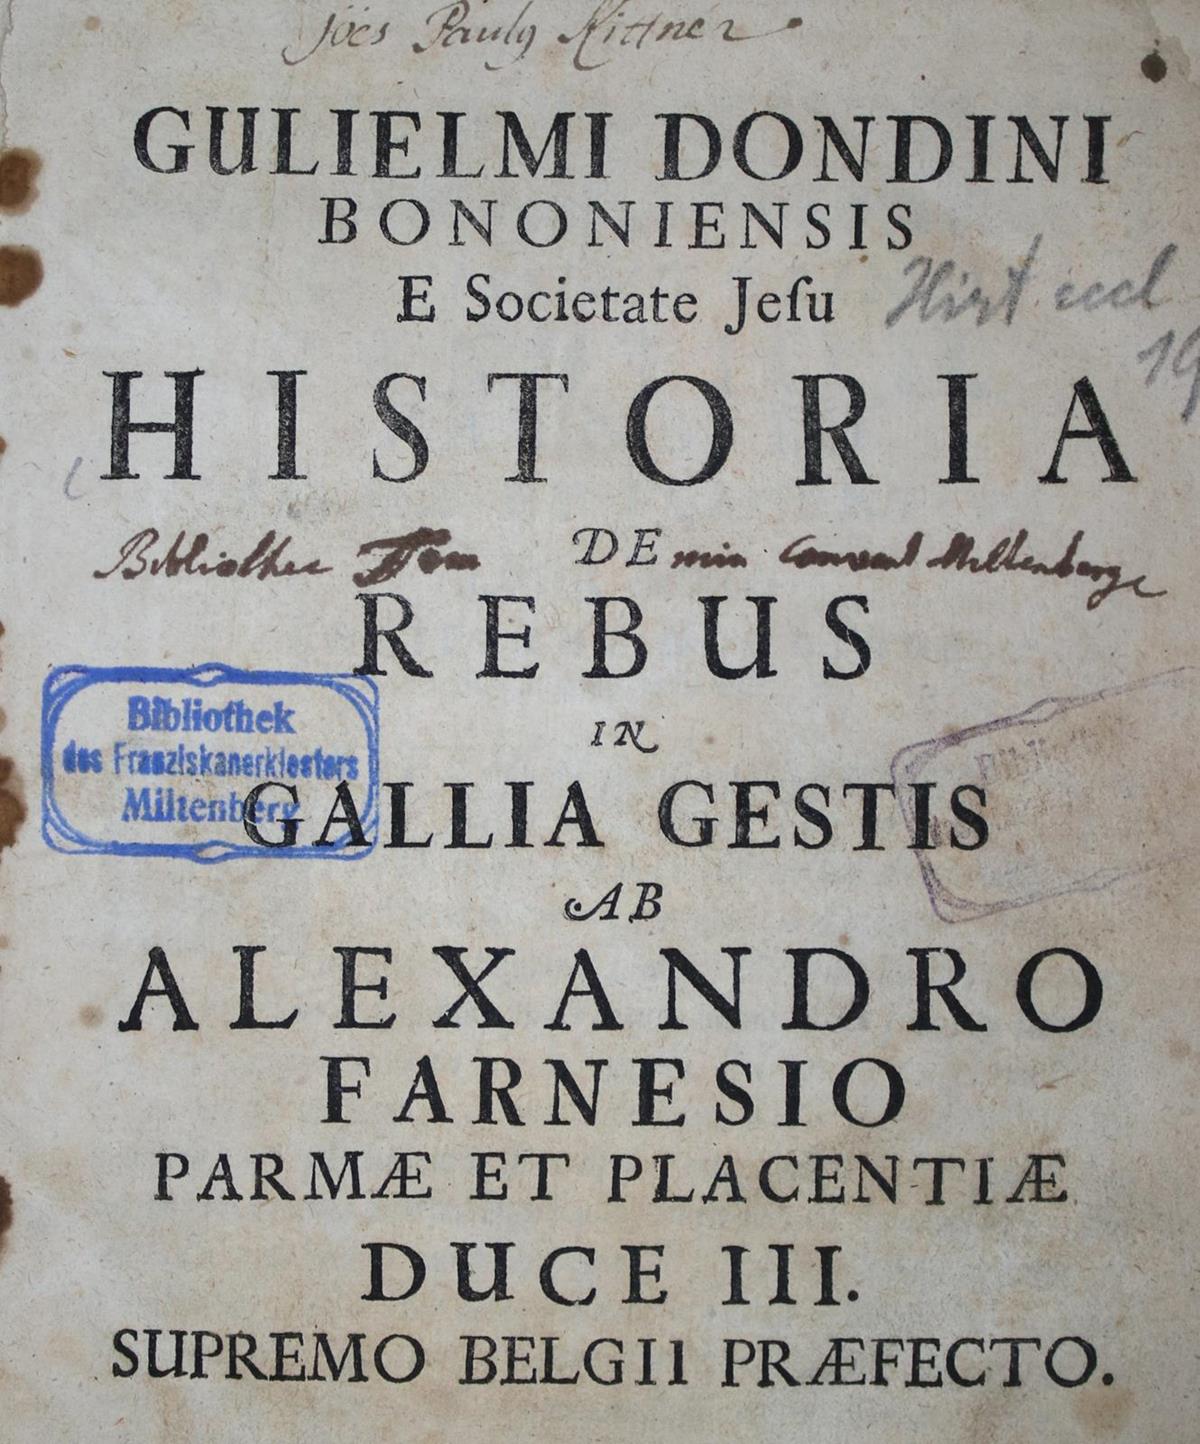 Joës Paulg Kittner
GULIELMI DONDINI
BONONIENSIS
E Societate Jeſu
Hist eccl
19
HISTORIA
DE
Bibliothec min convent Miltenberge
REBUS
Bibliothek
des Franziskanerklosters
Miltenberg
IN
GALLIA GESTIS
AB
ALEXANDRO
FARNESIO
PARMÆ ET PLACENTIÆ
DUCE III.
SUPREMO BELGII PRÆFECTO.